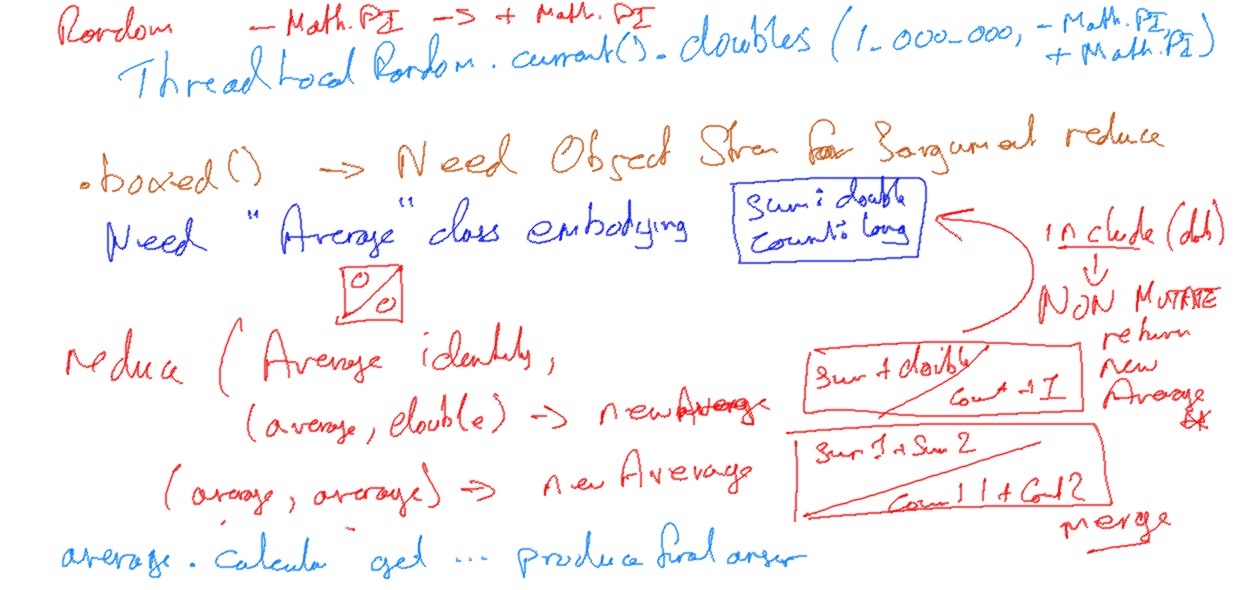 Random - Math.PI -> + Math.PI
ThreadLocalRandom.current().doubles (1_000_000, - Math.PI,
+ Math.PI)
.boxed() -> Need Object Stream for 3 argument reduce
Need "Average" class embodying
Sum: double
Count: long
include (dbl)
↓
NON MUTATE
return
new
Average
0/0
reduce (Average identity,
(average, double) -> new Average
Sum + double
Count + 1
(average, average) -> new Average
Sum 1 + Sum 2
Count 1 + Count 2
merge
average. calcula get ... produce final answer